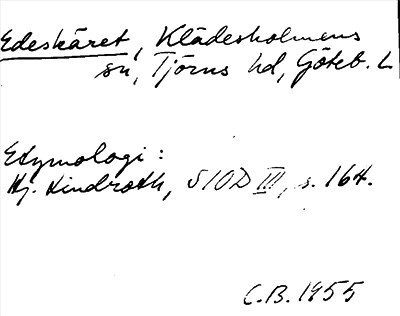 Edeskäret, Klädesholmens
sn, Tjörns hd, Göteb. L
Etymologi:
Hj. Lindroth, SIOD III, s. 164.
C.B. 1955